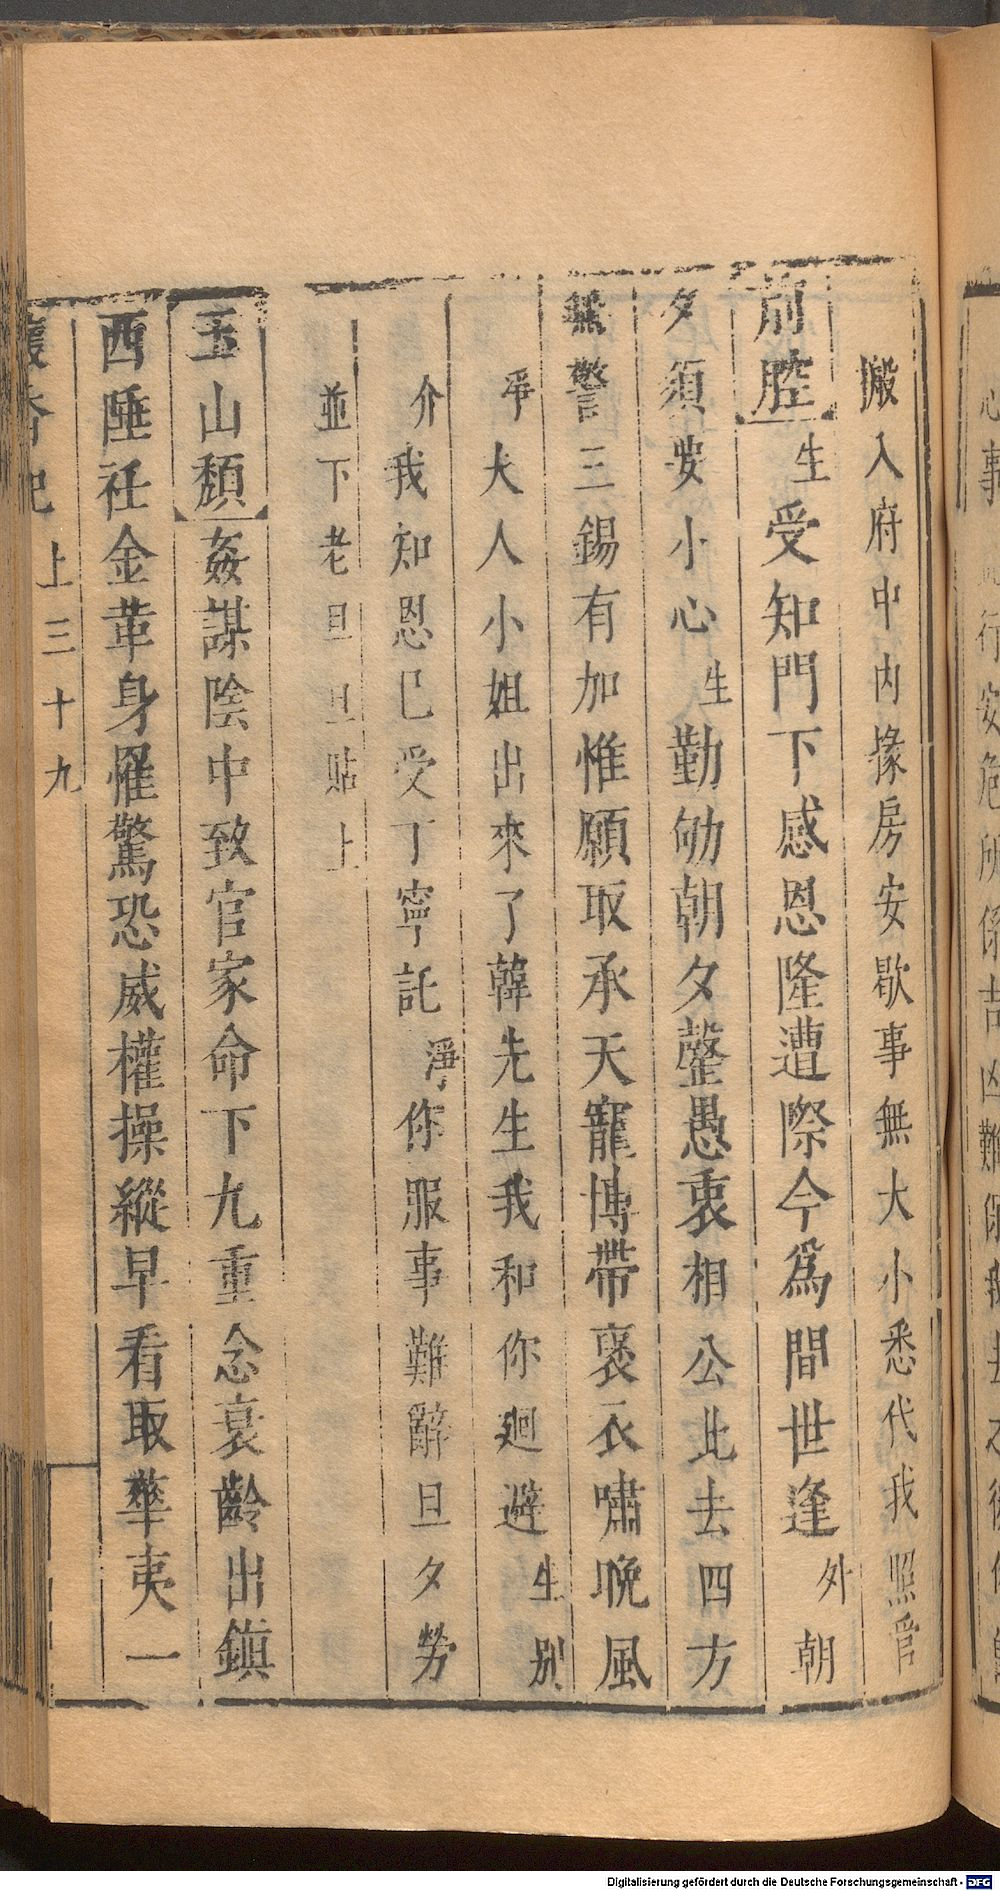 搬入府中內掾房安歇事無大小悉代我照管
前腔 生 受知門下感恩隆遭際今爲間世逢 外 朝
夕須要小心 生 勤劬朝夕罄愚衷相公此去四方
無警三錫有加惟願取承天寵博帶褒衣嘯晚風
淨 夫人小姐出來了韓先生我和你廻避 生 别
介 我知恩已受丁寧託 淨 你服事難辭旦夕勞
並下老旦旦貼上
玉山頹 姦謀陰中致官家命下九重念衰齡出鎮
西陲衽金革身罹驚恐威權操縱早看取華夷一
懷香記 上三十九
Digitalisierung gefördert durch die Deutsche Forschungsgemeinschaft - DFG